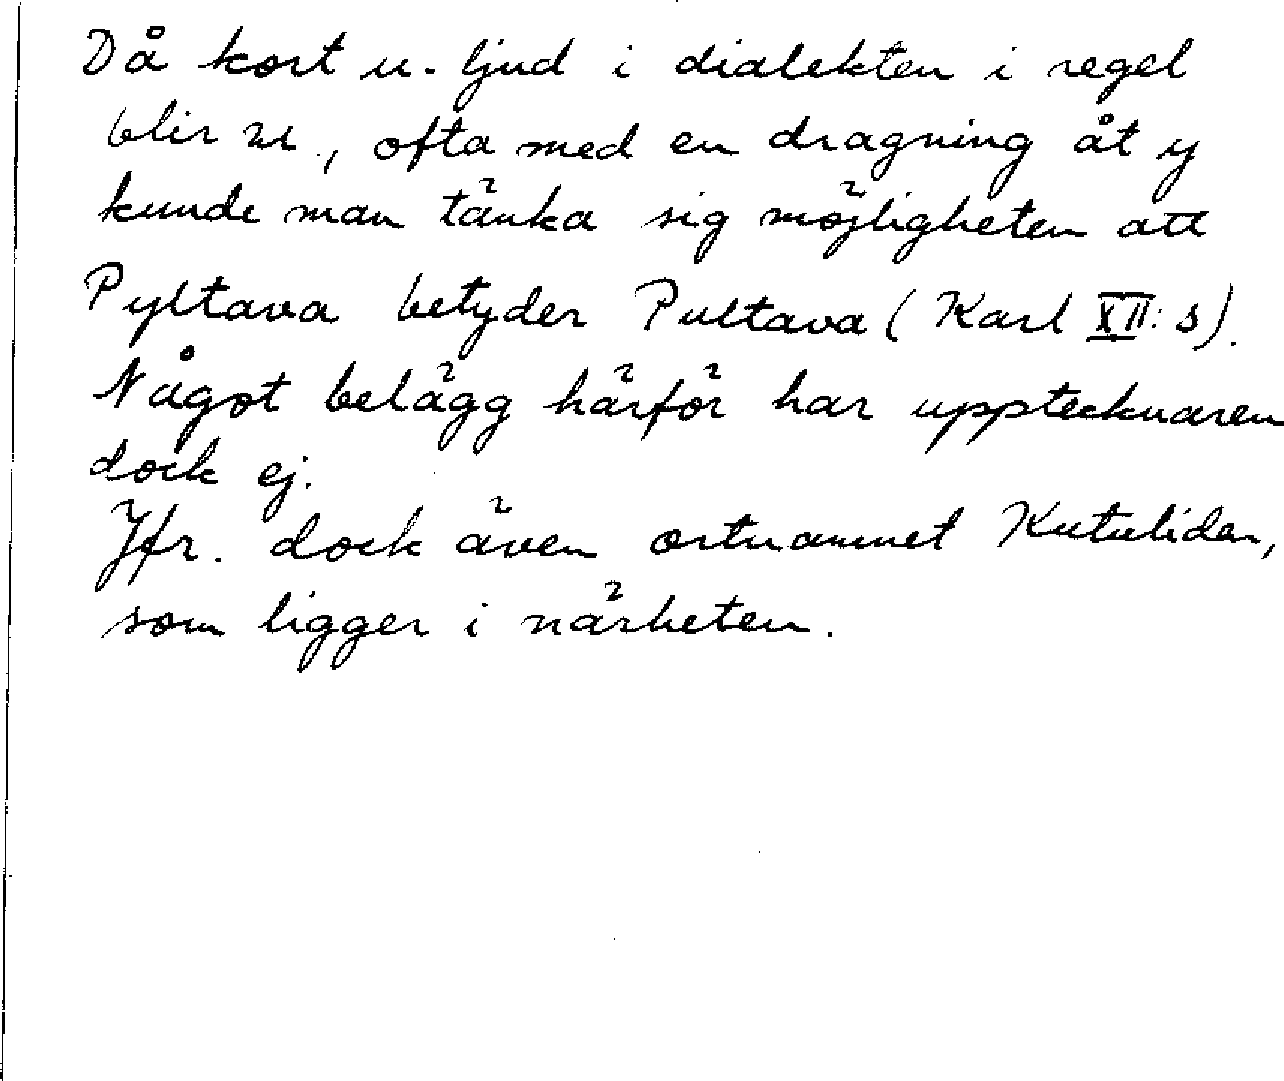 Då kort u-ljud i dialekten i regel
blir ʉ, ofta med en dragning åt y
kunde man tänka sig möjligheten att
Pyltava betyder Pultava (Karl XII:s).
Något belägg härför har upptecknaren
dock ej.
Jfr. dock även ortnamnet Kutuliden,
som ligger i närheten.